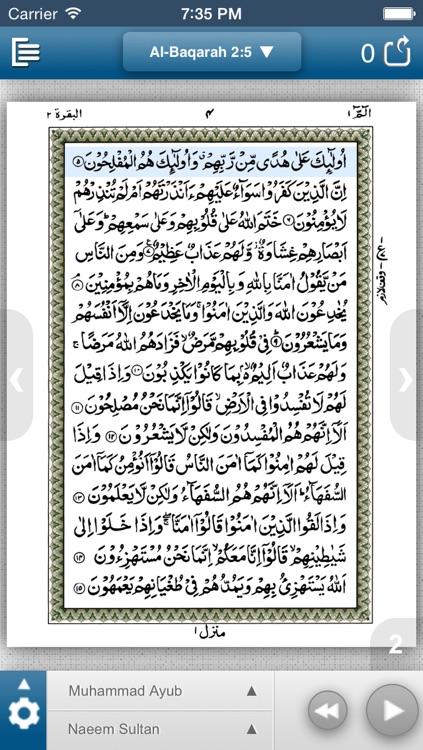 Carrier 7:35 PM
Al-Baqarah 2:5 ▼ 0
البقرة ٢ ۴ الٓمّٓ ١
اُولٰٓئِكَ عَلٰى هُدًى مِّنْ رَّبِّهِمْ ۙ وَاُولٰٓئِكَ هُمُ الْمُفْلِحُوْنَ ۵
اِنَّ الَّذِيْنَ كَفَرُوْا سَوَآءٌ عَلَيْهِمْ ءَاَنْذَرْتَهُمْ اَمْ لَمْ تُنْذِرْهُمْ
لَا يُؤْمِنُوْنَ ۶ خَتَمَ اللّٰهُ عَلٰى قُلُوْبِهِمْ وَعَلٰى سَمْعِهِمْ ؕ وَعَلٰٓى
اَبْصَارِهِمْ غِشَاوَةٌ ۫ وَّلَهُمْ عَذَابٌ عَظِيْمٌ ۷ وَمِنَ النَّاسِ
مَنْ يَّقُوْلُ اٰمَنَّا بِاللّٰهِ وَبِالْيَوْمِ الْاٰخِرِ وَمَا هُمْ بِمُؤْمِنِيْنَ ۸
يُخٰدِعُوْنَ اللّٰهَ وَالَّذِيْنَ اٰمَنُوْا ۚ وَمَا يَخْدَعُوْنَ اِلَّاۤ اَنْفُسَهُمْ
وَمَا يَشْعُرُوْنَ ۹ فِىْ قُلُوْبِهِمْ مَّرَضٌ ۙ فَزَادَهُمُ اللّٰهُ مَرَضًا ۚ
وَلَهُمْ عَذَابٌ اَلِيْمٌ ۢ ۙ بِمَا كَانُوْا يَكْذِبُوْنَ ۱۰ وَاِذَا قِيْلَ
لَهُمْ لَا تُفْسِدُوْا فِى الْاَرْضِ ۙ قَالُوْۤا اِنَّمَا نَحْنُ مُصْلِحُوْنَ ۱۱
اَلَاۤ اِنَّهُمْ هُمُ الْمُفْسِدُوْنَ وَلٰكِنْ لَّا يَشْعُرُوْنَ ۱۲ وَاِذَا
قِيْلَ لَهُمْ اٰمِنُوْا كَمَاۤ اٰمَنَ النَّاسُ قَالُوْۤا اَنُؤْمِنُ كَمَاۤ اٰمَنَ
السُّفَهَآءُ ؕ اَلَاۤ اِنَّهُمْ هُمُ السُّفَهَآءُ وَلٰكِنْ لَّا يَعْلَمُوْنَ ۱۳
وَاِذَا لَقُوا الَّذِيْنَ اٰمَنُوْا قَالُوْۤا اٰمَنَّا ۖۚ وَاِذَا خَلَوْا اِلٰى
شَيٰطِيْنِهِمْ ۙ قَالُوْۤا اِنَّا مَعَكُمْ ۙ اِنَّمَا نَحْنُ مُسْتَهْزِءُوْنَ ۱۴
اَللّٰهُ يَسْتَهْزِئُ بِهِمْ وَيَمُدُّهُمْ فِىْ طُغْيَانِهِمْ يَعْمَهُوْنَ ۱۵
منزل ١
2
Muhammad Ayub ▲
Naeem Sultan ▲